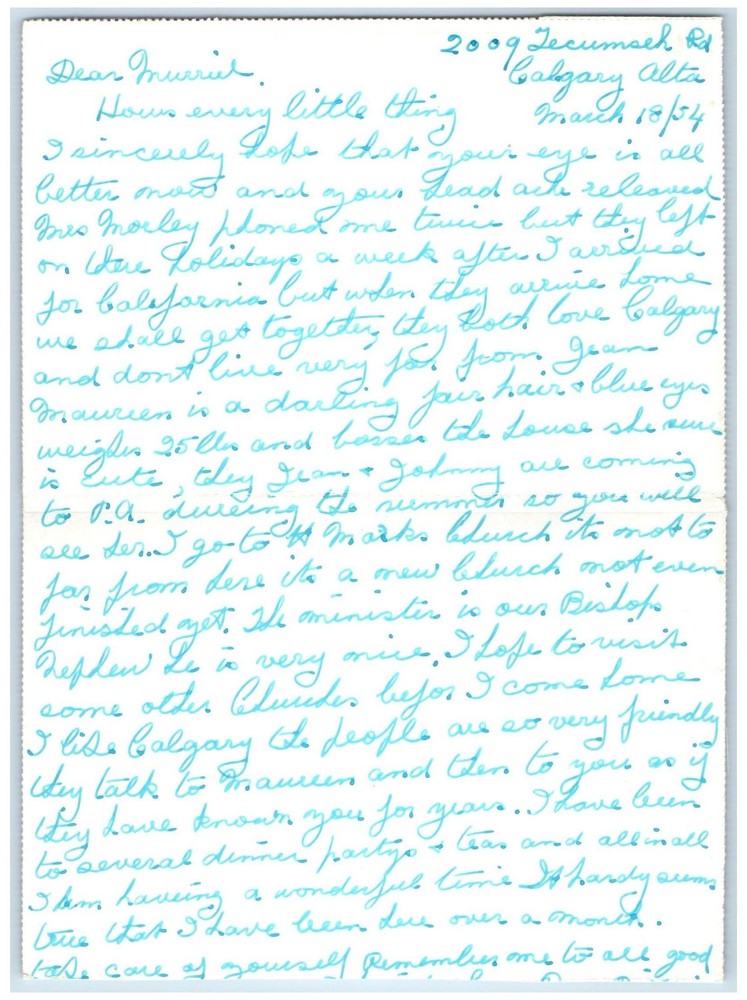 2009 Tecumseh Rd
Calgary Alta
March 18/54
Dear Murriel.
Hows every little thing
I sincerely hope that your eye is all
better now and your head ache releaved
Mrs Morley phoned me twice but they left
on there holidays a week after I arrived
for California but when they arrive home
we shall get together, they both love Calgary
and dont live very far from Jean
Maureen is a darling fair hair & blue eyes
weighs 25 lbs and bosses the house she sure
is cute, they Jean & Johnny are coming
to P.A. dureing the summer so you will
see her. I go to St Marks Church its not to
far from here its a new Church not even
finished yet. The minister is our Bishops
Nephew he is very nice. I hope to visit
some other Churches befor I come home
I like Calgary the people are so very friendly
they talk to Maureen and then to you as if
they have known you for years. I have been
to several dinner partys & teas and all in all
I am haveing a wonderful time It hardy seems
true that I have been here over a month.
take care of yourself Remember me to all good